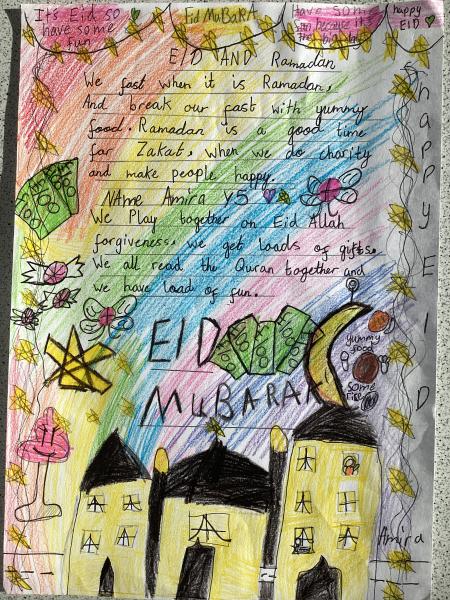 It's Eid so
have some
fun
Eid MuBaRA
Have som
happy
EID
EID AND Ramadan
We fast when it is Ramadan,
And break our fast with yummy
food. Ramadan is a good time
for Zakat, when we do charity
and make people happy.
NAme Amira Y5
We Play together on Eid Allah
forgiveness. we get loads of gifts.
We all read the Quran together and
we have load of fun.
EID
MuBARAK
yummy
food
some
happy EID
Amira